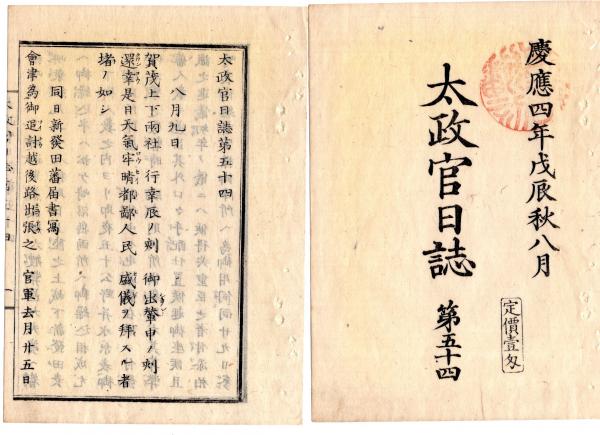 慶應四年戊辰秋八月
太政官日誌 第五十四
定價壹匁
太政官日誌第五十四
八月九日
賀茂上下兩社ノ行幸辰ノ刻 御出輦申ノ刻
還幸是日天氣牢晴都鄙人民 威儀ヲ拜スル者
堵ノ如シ
同日新發田藩届書寫
會津為御追討越後路出張之 官軍去月廿五日